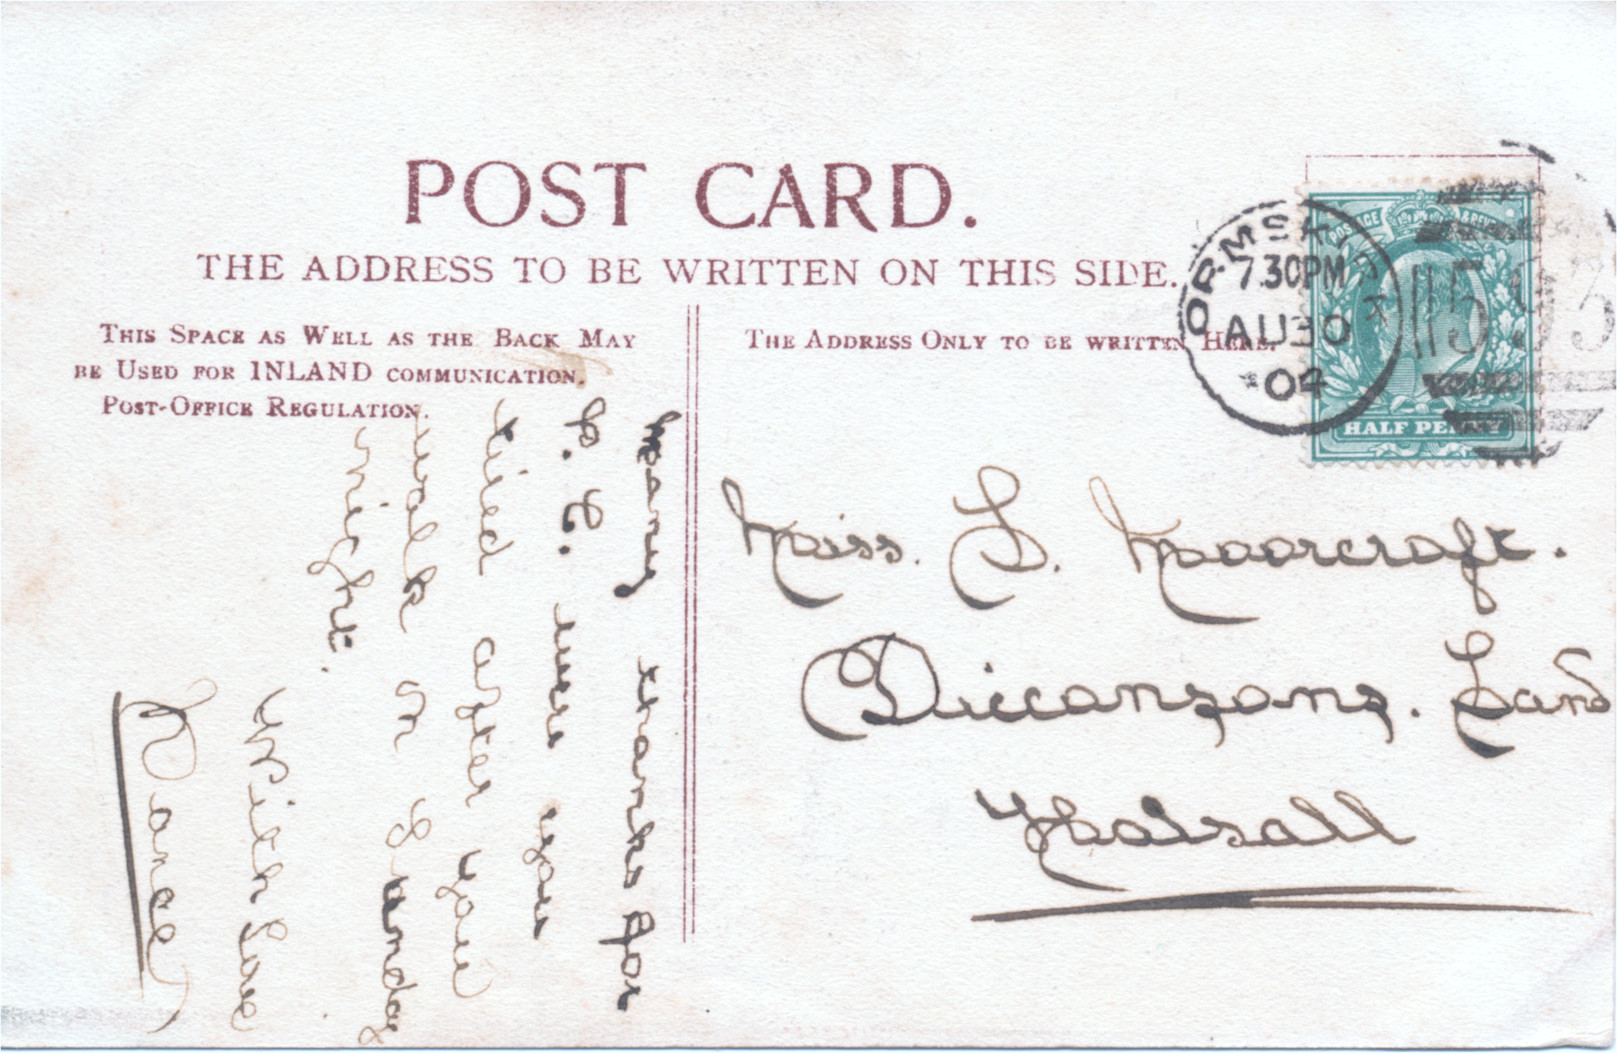 POST CARD.
THE ADDRESS TO BE WRITTEN ON THIS SIDE.
THIS SPACE AS WELL AS THE BACK MAY
BE USED FOR INLAND COMMUNICATION.
POST-OFFICE REGULATION.
THE ADDRESS ONLY TO BE WRITTEN HERE.
ORMSKIRK
7.30PM
AU 30
04
POSTAGE & REVENUE
HALF PENNY
Many thanks for
P. C. were you
tired after you
walk on Sunday
night.
With Love
Miss. L. Moorcroft.
Diccansons. Land
Halsall